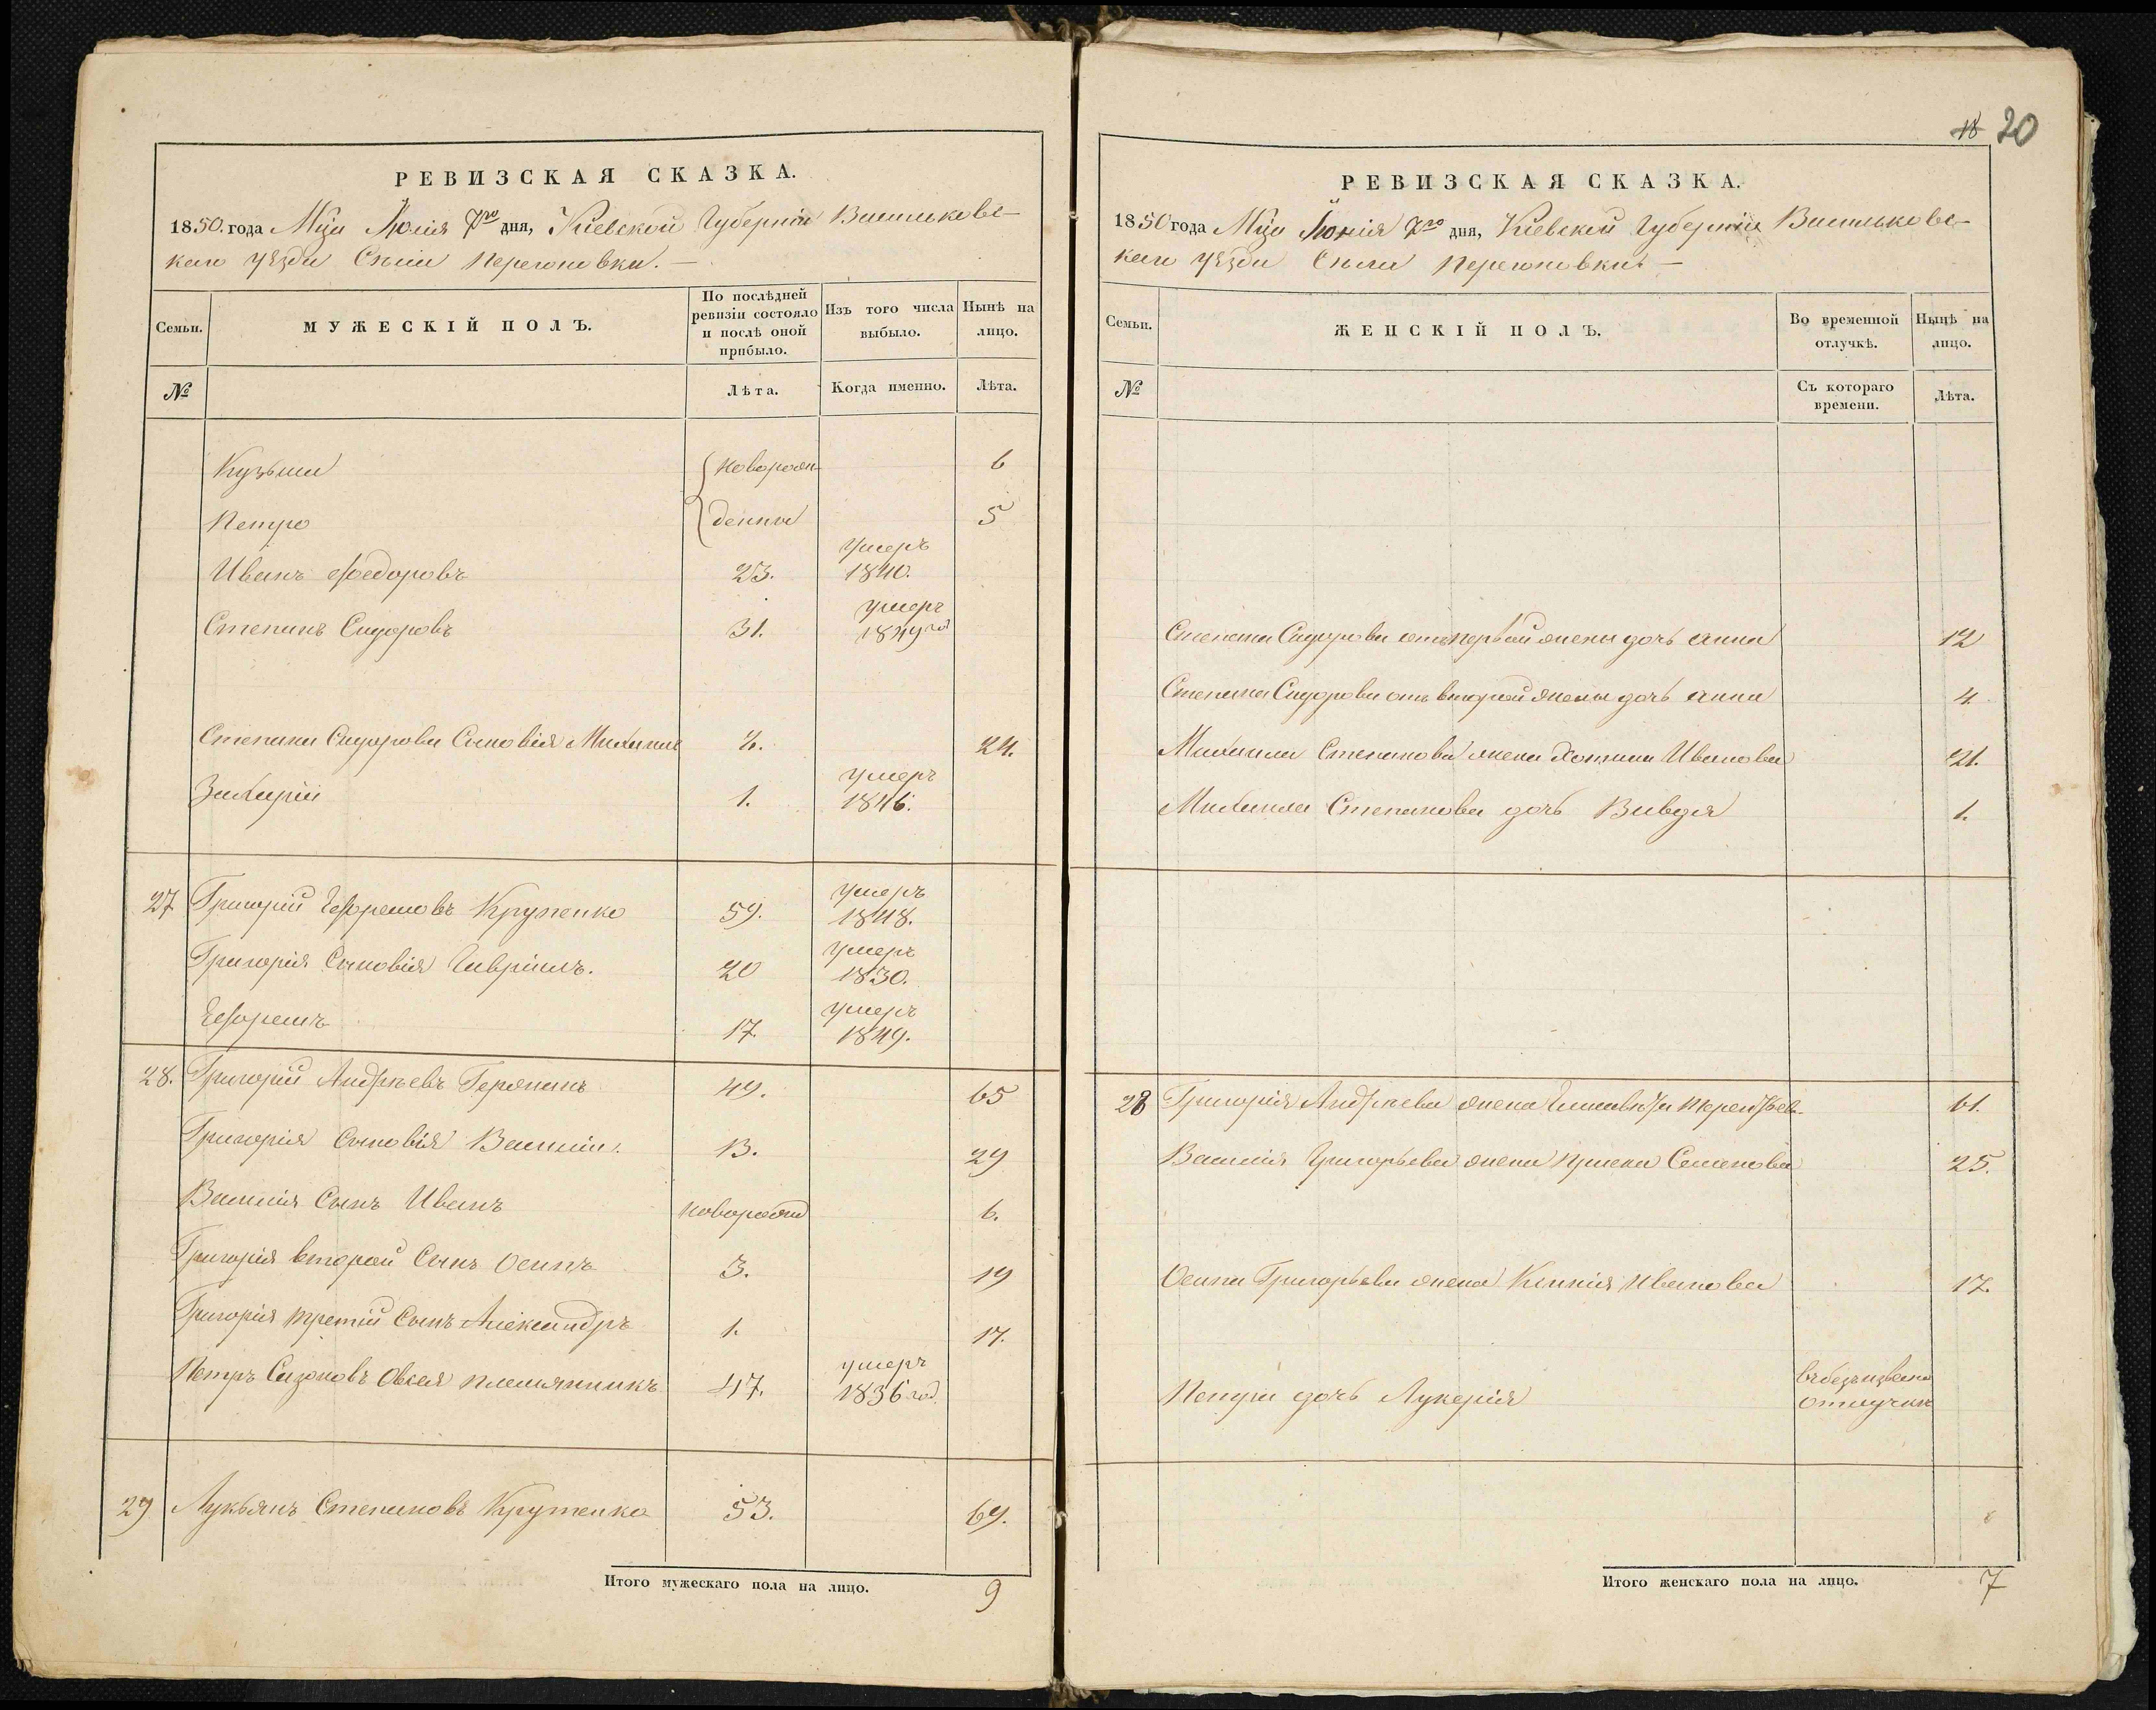 РЕВИЗСКАЯ СКАЗКА.
1850. года Мца Июлія 7го дня, Кіевской Губерніи Васильковс-
каго уѣзда Села Перегоновки. —
Семьи.
МУЖЕСКІЙ ПОЛЪ.
По послѣдней ревизіи состояло и послѣ оной прибыло.
Изъ того числа выбыло.
Нынѣ на лицо.
№
Лѣта.
Когда именно.
Лѣта.
Кузьма новорож- 6
Петро денны 5
Иванъ Федоровъ 23. умеръ 1840.
Степанъ Сидоровъ 31. умеръ 1849 год
Степана Сидорова Сыновія Михаилъ 24.
Захарій 1. умеръ 1846.
27 Григорій Ефремовъ 59. умеръ 1848.
Григорія Сыновія Гавріилъ. 20 умеръ 1830.
Ефремъ 17. умеръ 1849.
28. Григорій Андрѣевъ 49. 65
Григорія Сыновія Василій. 13. 29
Василія Сынъ Иванъ новорожд 6.
Григорія второй Сынъ Осипъ 3. 19
Григорія третій Сынъ Александръ 1. 17.
Петръ Сизоновъ племянникъ 47. умеръ 1836 год.
29 Лукьянъ Степановъ Крутенко 53. 69.
Итого мужескаго пола на лицо. 9
18 20
РЕВИЗСКАЯ СКАЗКА.
1850 года Мца Июлія 7го дня, Кіевской Губерніи Васильковс-
каго уѣзда Села Перегоновки. —
Семьи.
ЖЕНСКІЙ ПОЛЪ.
Во временной отлучкѣ.
Нынѣ на лицо.
№
Съ котораго времени.
Лѣта.
Степана Сидорова отъ первой жены дочь Анна 12
Степана Сидорова отъ второй жены дочь Анна 4.
Михаила Степанова жена Иванова 21.
Михаила Степанова дочь Вивдя 1.
28 Григорія Андрѣева жена 61.
Василія Григорьева жена Семенова 25.
Осипа Григорьева жена Ксенія Иванова 17.
Петра дочь Лукерія въ безъизвесно отлучкѣ
Итого женскаго пола на лицо. 7